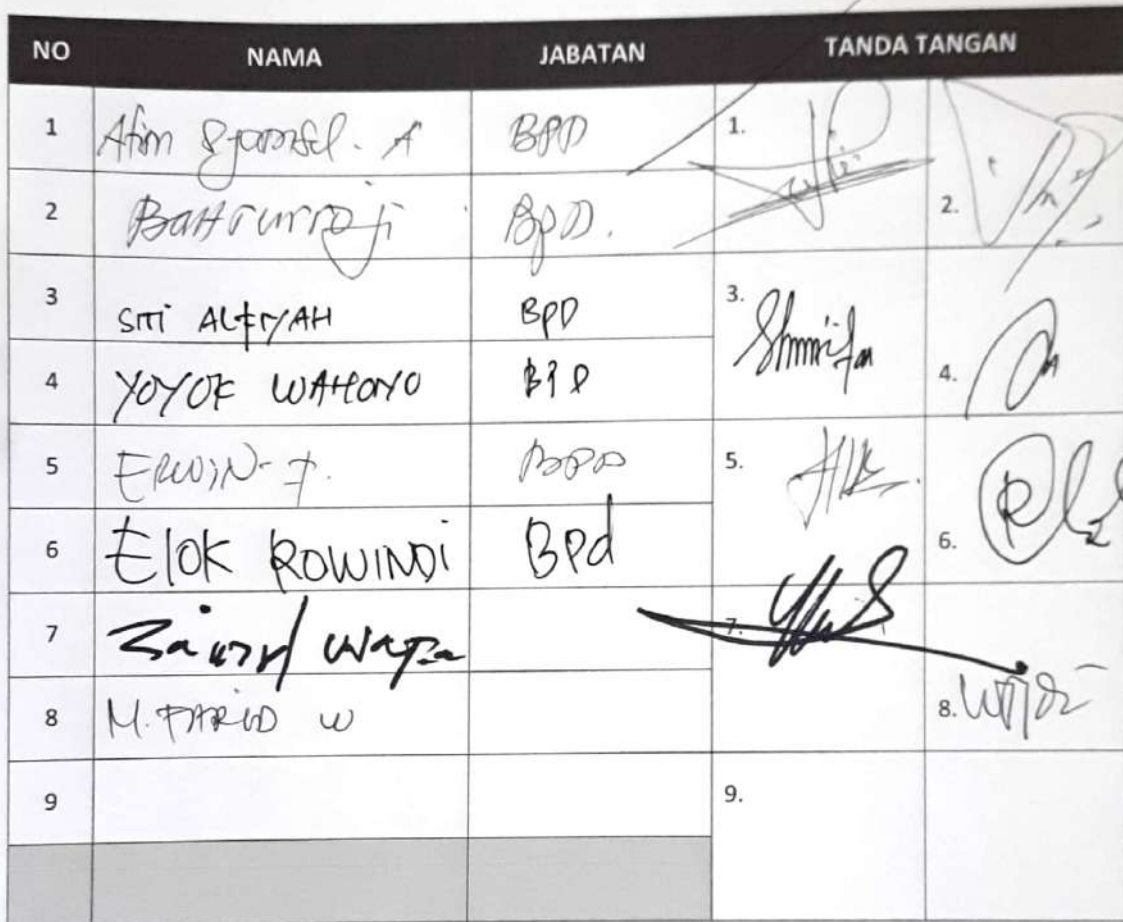 NO NAMA JABATAN TANDA TANGAN
1 BPD 1.
2 BAHrurroji BPD. 2.
3 SITI ALFIYAH BPD 3.
4 YOYOK WAHONO BPD 4.
5 ERWIN BPD 5.
6 ElOK ROWINDi BPd 6.
7 Zainul 7.
8 M. FARID W 8.
9 9.